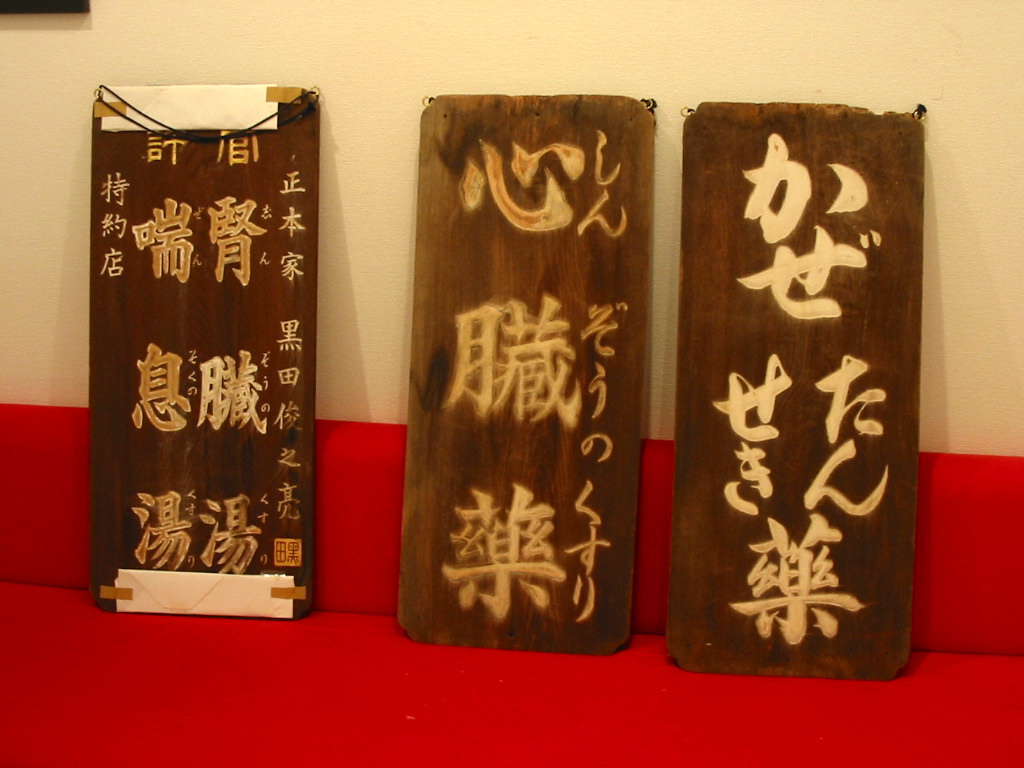 官許
正本家 黒田俊之亮
黒田
腎臓湯
じんぞうのくすり
喘息湯
ぜんそくのくすり
特約店
心臓薬
しんぞうのくすり
かぜ
たん
せき
藥